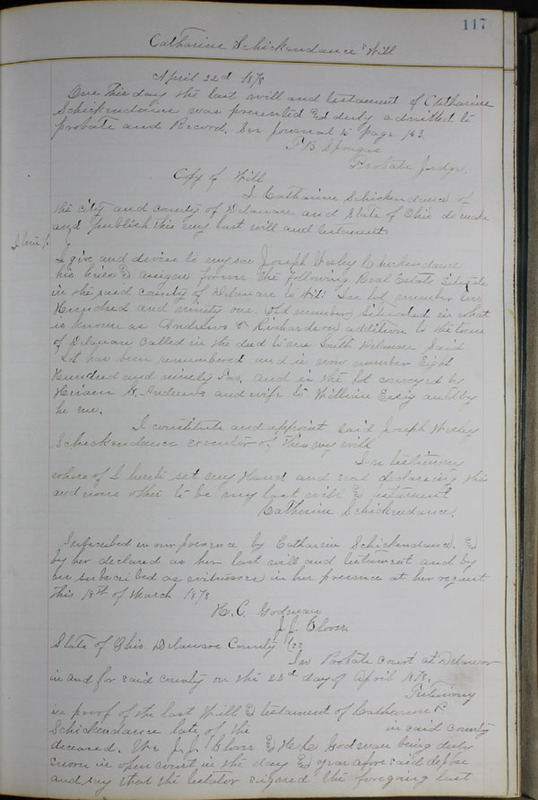 117
Catharine Schickendance Will
April 22nd 1878
On this day the last will and testament of Catharine
Schickendance was presented & duly admitted to
probate and Record. See Journal page 163
Probate Judge.
Copy of Will
I Catharine Schickendance of
the city and county of Delaware and State of Ohio do make
and publish this my last will and testament
I give and devise to my son Joseph Wesley Schickendance
his heirs & assigns forever the following Real Estate situate
in the said county of Delaware to wit: In lot number
Hundred and ninety one, old number, situated in what
is known as Andrews & Richardson addition to the town
of Delaware called in the deed South Delaware said
Lot has been renumbered and is now number Eight
Hundred and ninety and is the lot conveyed by
Andrews and wife to William and by
he me.
I constitute and appoint said Joseph Wesley
Schickendance executor of this my will
In testimony
whereof I have set my hand and seal declaring this
and none other to be my last will & testament
Catherine Schickendance.
Subscribed in our presence by Catharine Schickendance, &
by her declared as her last will and testament and by
us subscribed as witnesses in her presence at her request
this 18th of March 1878
H. C. Godman
J. J. Glover
State of Ohio Delaware County ss
In Probate Court at Delaware
in and for said county on the 22d day of April 1878.
Testimony
in proof of the last Will & testament of Catharine
Schickendance late of the in said county
deceased. We J. J. Glover & H. C. Godman being duly
sworn in open court in the day & year aforesaid depose
and say that the testator signed the foregoing last